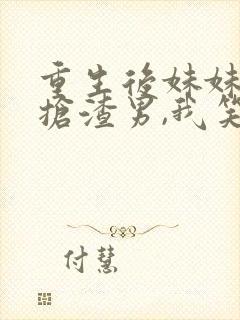 重生後妹妹
搶渣男,我笑
付慧